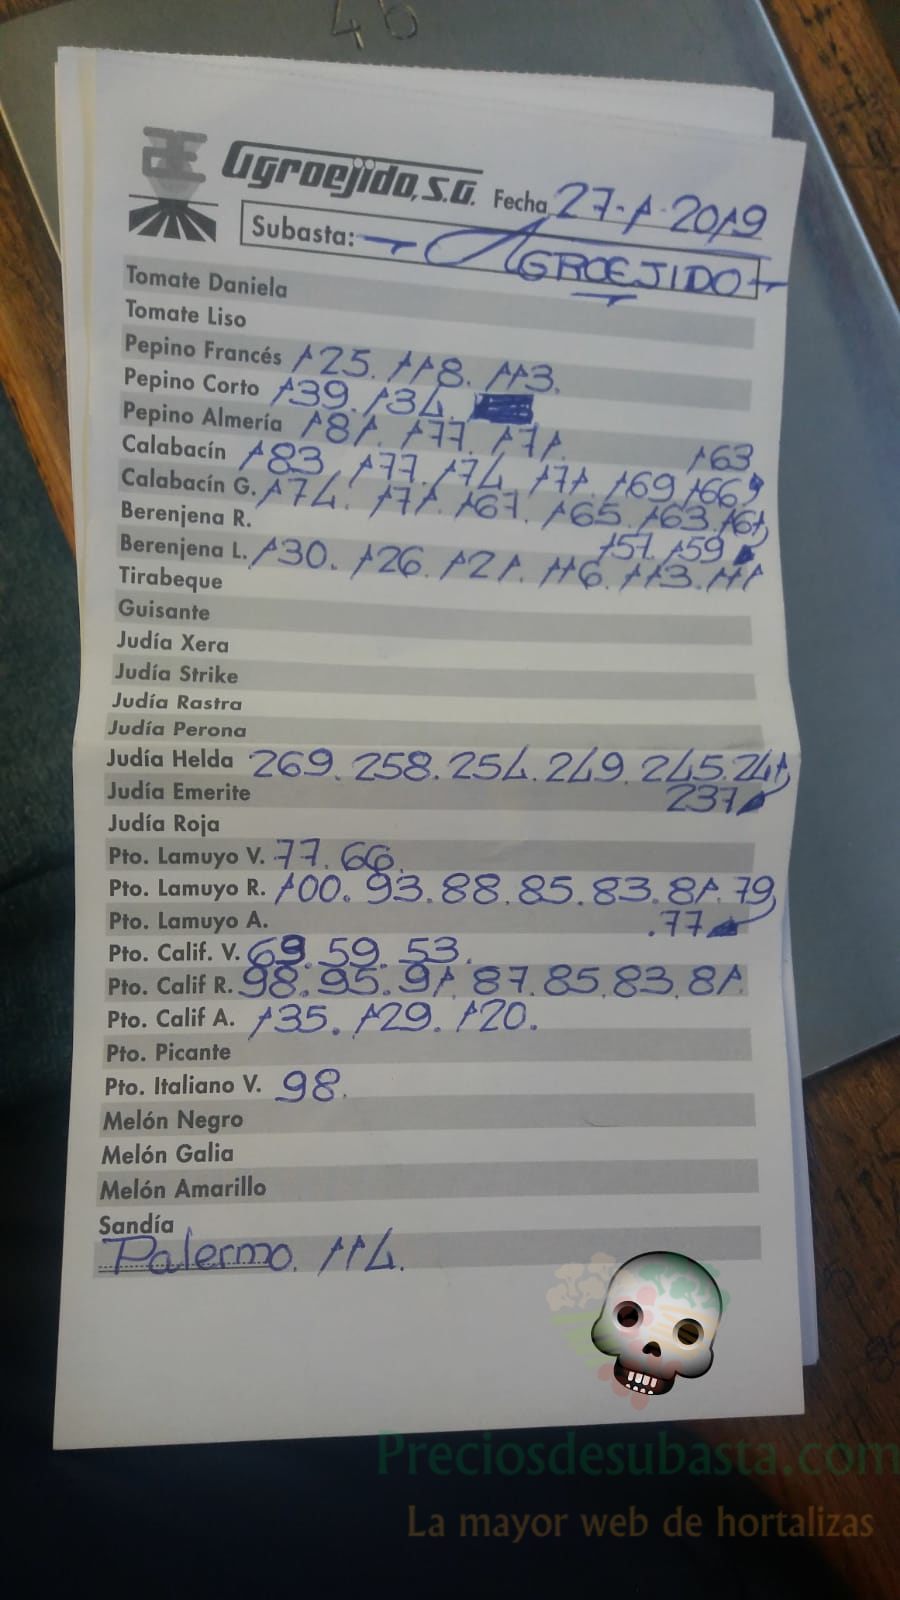 46
Agroejido, S.A. Fecha 27-1-2019
Subasta: AGROEJIDO
Tomate Daniela
Tomate Liso
Pepino Francés 125. 118. 113.
Pepino Corto 139. 134.
Pepino Almería 181. 177. 171.
163
Calabacín 183. 177. 174. 171. 169. 166
Calabacín G. 174. 171. 167. 165. 163. 161
Berenjena R.
157. 159
Berenjena L. 130. 126. 121. 116. 113. 111
Tirabeque
Guisante
Judía Xera
Judía Strike
Judía Rastra
Judía Perona
Judía Helda 269. 258. 254. 249. 245. 241
Judía Emerite 237
Judía Roja
Pto. Lamuyo V. 77. 66.
Pto. Lamuyo R. 100. 93. 88. 85. 83. 81. 79
Pto. Lamuyo A. .77
Pto. Calif. V. 69. 59. 53.
Pto. Calif R. 98. 95. 91. 87. 85. 83. 81.
Pto. Calif A. 135. 129. 120.
Pto. Picante
Pto. Italiano V. 98.
Melón Negro
Melón Galia
Melón Amarillo
Sandía
Palermo. 114.
Preciosdesubasta.com
La mayor web de hortalizas